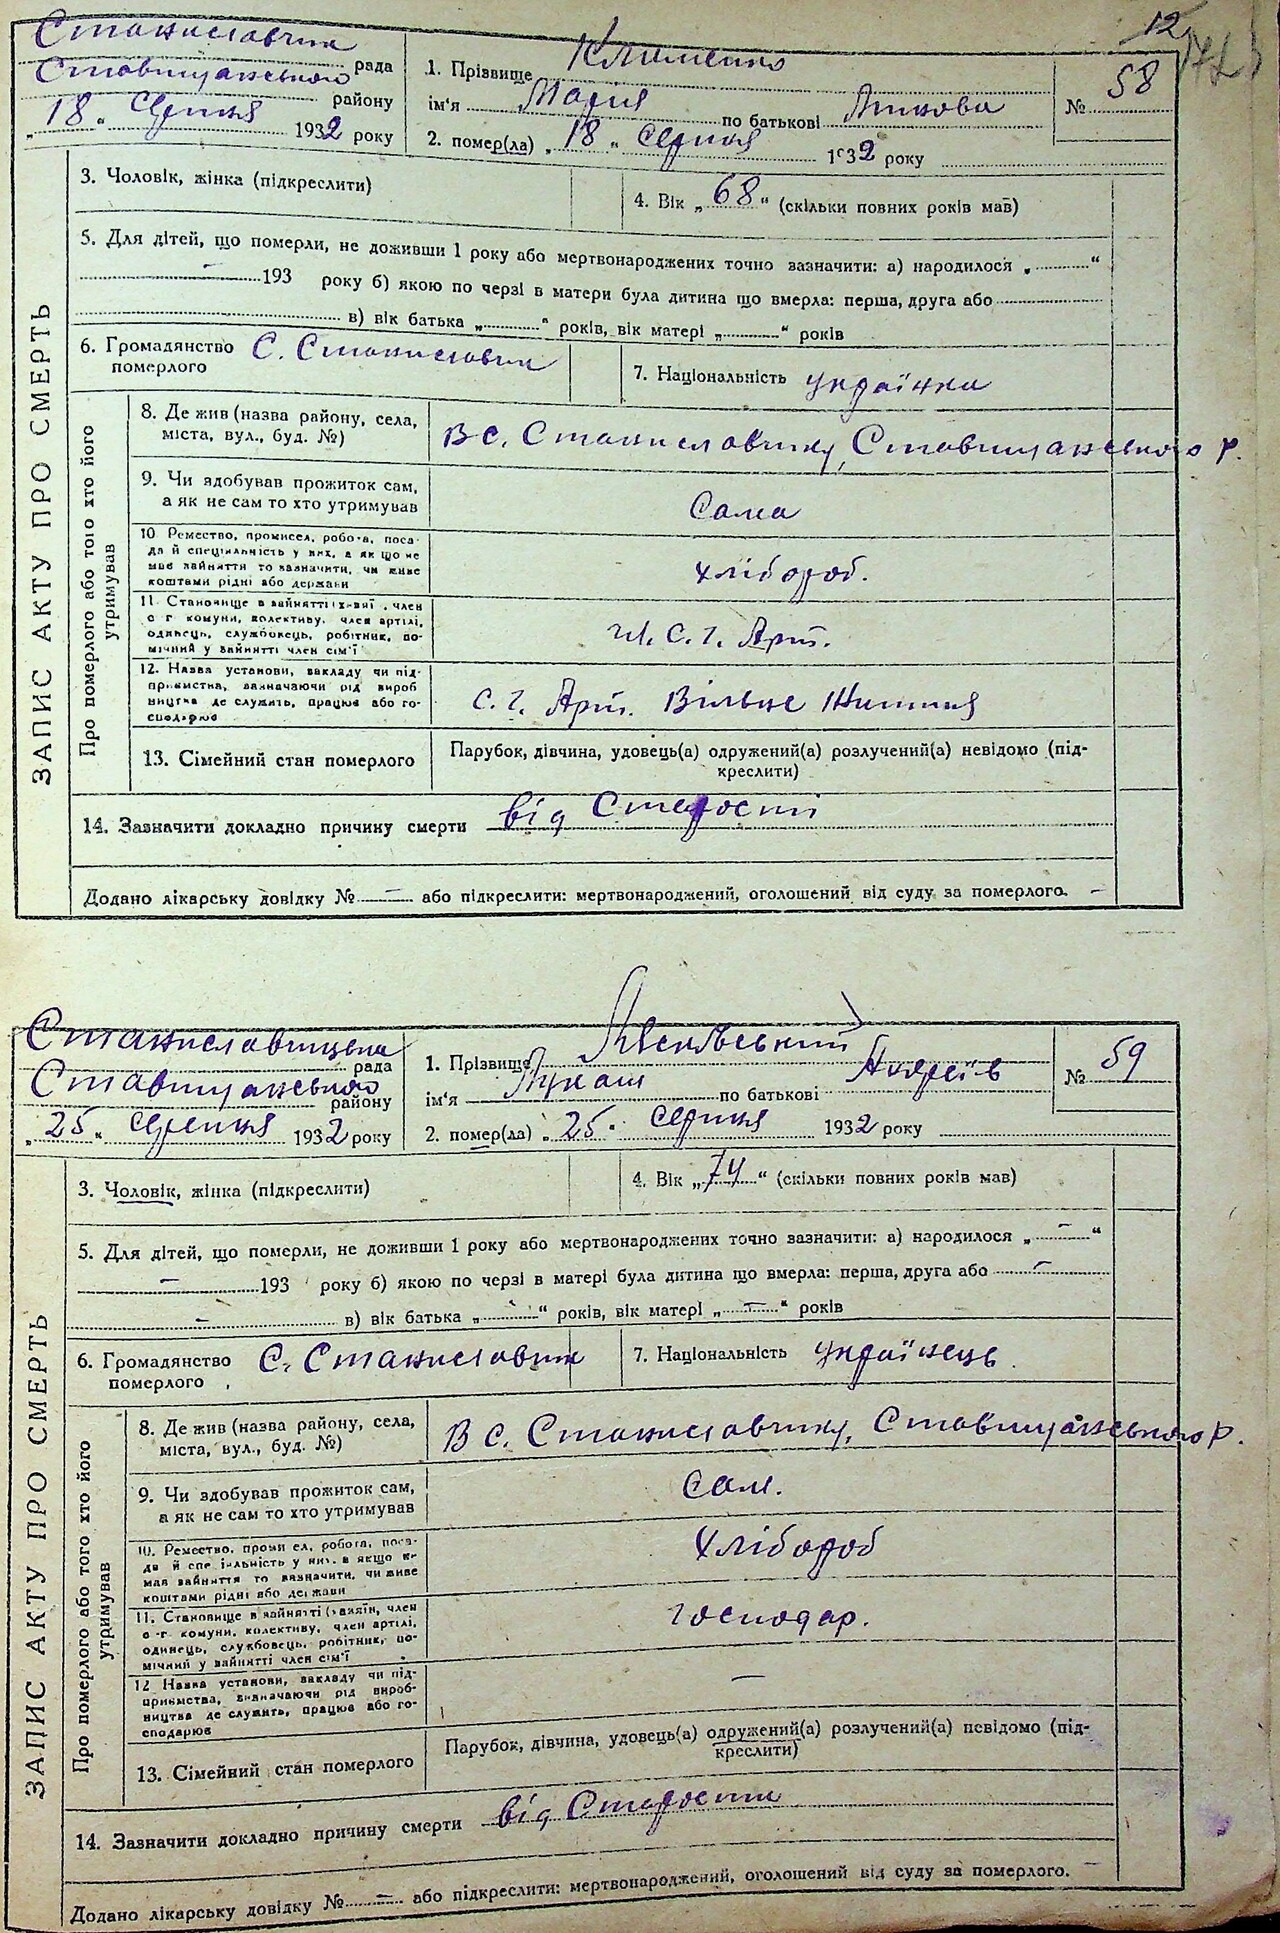 12
58
Станиславчик рада
Ставищанського району
„18“ Серпня 1932 року
1. Прізвище Клименко
ім'я Марія по батькові
2. помер(ла) „18“ Серпня 1932 року
№ 58
ЗАПИС АКТУ ПРО СМЕРТЬ
3. Чоловік, жінка (підкреслити)
4. Вік „68“ (скільки повних років мав)
5. Для дітей, що померли, не доживши 1 року або мертвонароджених точно зазначити: а) народилося „ “
— 193 року б) якою по черзі в матери була дитина що вмерла: перша, друга або
в) вік батька „ “ років, вік матері „ “ років
6. Громадянство померлого С. Станиславчик
7. Національність українка
Про померлого або того хто його утримував
8. Де жив (назва району, села,
міста, вул., буд. №)
В с. Станиславчику, Ставищанського р.
9. Чи здобував прожиток сам,
а як не сам то хто утримував
Сама
10 Ремество, промисел, робота, поса-
да й спеціяльність у них, а якщо не
має зайняття то зазначити, чи живе
коштами рідні або держави
хлібороб.
11. Становище в зайнятті (хазяї, член
с г комуни, колективу, член артілі,
одинець, службовець, робітник, по-
мічний у зайнятті член сім'ї
чл. с. г. Арт.
12. Назва установи, закладу чи під-
приємства, зазначаючи рід вироб
ництва де служить, працює або го-
сподарює
с. г. Арт. Вільне Життя
13. Сімейний стан померлого
Парубок, дівчина, удовець(а) одружений(а) розлучений(а) невідомо (під-
креслити)
14. Зазначити докладно причину смерти від Старости
Додано лікарську довідку № — або підкреслити: мертвонароджений, оголошений від суду за померлого. —
Станиславчицька рада
Ставищанського району
„25“ Серпня 1932 року
1. Прізвище
ім'я Лукаш по батькові Андреїв
2. помер(ла) „25“ Серпня 1932 року
№ 59
ЗАПИС АКТУ ПРО СМЕРТЬ
3. Чоловік, жінка (підкреслити)
4. Вік „74“ (скільки повних років мав)
5. Для дітей, що померли, не доживши 1 року або мертвонароджених точно зазначити: а) народилося „—“
— 193 року б) якою по черзі в матері була дитина що вмерла: перша, друга або —
— в) вік батька „—“ років, вік матері „—“ років
6. Громадянство померлого С. Станиславчик
7. Національність українець.
Про померлого або того хто його утримував
8. Де жив (назва району, села,
міста, вул., буд. №)
В с. Станиславчику, Ставищанського р.
9. Чи здобував прожиток сам,
а як не сам то хто утримував
сам.
10. Ремество, промисел, робота, поса-
да й спеціяльність у них, а якщо не
мав зайняття то зазначити, чи живе
коштами рідні або держави
хлібороб
11. Становище в зайнятті (хазяїн, член
с-г комуни, колективу, член артілі,
одинець, службовець, робітник, по-
мічний у зайнятті член сім'ї
господар.
12 Назва установи, закладу чи під-
приємства, зазначаючи рід вироб-
ництва де служить, працює або го-
сподарює
—
13. Сімейний стан померлого
Парубок, дівчина, удовець(а) одружений(а) розлучений(а) невідомо (під-
креслити)
14. Зазначити докладно причину смерти від Старости
Додано лікарську довідку № — або підкреслити: мертвонароджений, оголошений від суду за померлого. —